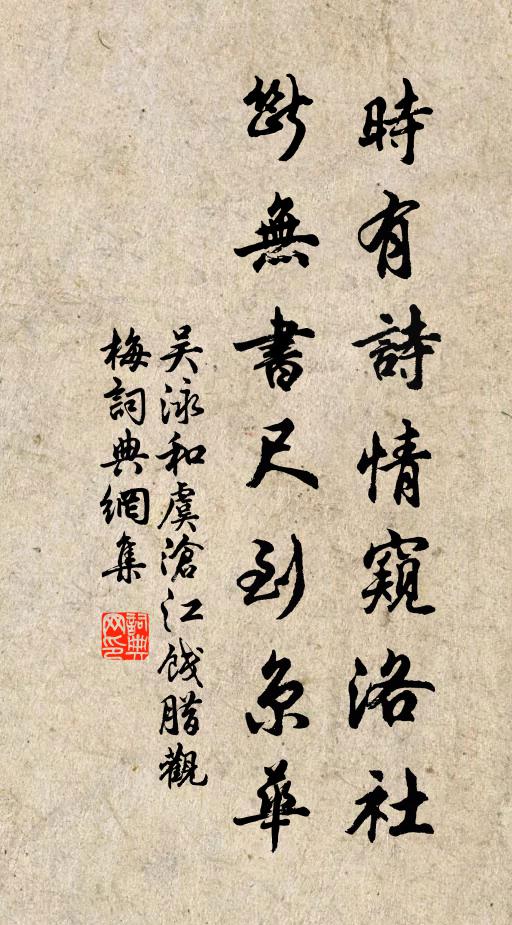 時有詩情窺洛社
斷無書尺到京華
吴泳和虞滄江餞腊觀
梅詞典網集
詞典
网印